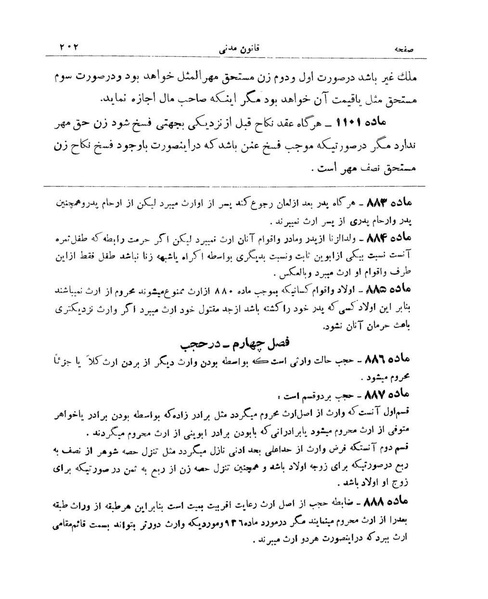 صفحه قانون مدنی ۲۰۲
ملك غیر باشد درصورت اول ودوم زن مستحق مهرالمثل خواهد بود ودرصورت سوم
مستحق مثل یاقیمت آن خواهد بود مگر اینکه صاحب مال اجازه نماید.
ماده ۱۱۰۱ ـ هرگاه عقد نکاح قبل ازنزدیکی بجهتی فسخ شود زن حق مهر
ندارد مگر درصورتیکه موجب فسخ عنن باشد که دراینصورت باوجود فسخ نکاح زن
مستحق نصف مهر است.
ماده ۸۸۳ ـ هرگاه پدر بعد ازلعان رجوع کند پسر از اوارث میبرد لیکن از ارحام پدروهمچنین
پدر وارحام پدری از پسر ارث نمیبرند.
ماده ۸۸۴ ـ ولدالزنا ازپدر ومادر واقوام آنان ارث نمیبرد لیکن اگر حرمت رابطه که طفل ثمره
آنست نسبت بیکی ازابوین ثابت ونسبت بدیگری بواسطه اکراه یاشبهه زنا نباشد طفل فقط ازاین
طرف واقوام او ارث میبرد وبالعکس.
ماده ۸۸۵ ـ اولاد واقوام کسانیکه بموجب ماده ۸۸۰ ازارث ممنوع میشوند محروم از ارث نمیباشند
بنابر این اولاد کسی که پدر خود راکشته باشد ازجد مقتول خود ارث میبرد اگر وارث نزدیکتری
باعث حرمان آنان نشود.
فصل چهارم ـ درحجب
ماده ۸۸۶ ـ حجب حالت وارثی است که بواسطه بودن وارث دیگر از بردن ارث کلاً یا جزئاً
محروم میشود.
ماده ۸۸۷ ـ حجب بردوقسم است:
قسم اول آنست که وارث از اصل ارث محروم میگردد مثل برادر زاده که بواسطه بودن برادر یاخواهر
متوفی از ارث محروم میشود یابرادرابی که بابودن برادر ابوینی از ارث محروم میگردند.
قسم دوم آنستکه فرض وارث از حداعلی بحد ادنی نازل میگردد مثل تنزل حصه شوهر از نصف به
ربع درصورتیکه برای زوجه اولاد باشد و همچنین تنزل حصه زن از ربع به ثمن در صورتیکه برای
زوج او اولاد باشد.
ماده ۸۸۸ ـ ضابطه حجب از اصل ارث رعایت اقربیت بمیت است بنابراین هرطبقه از وراث طبقه
بعدرا از ارث محروم مینمایند مگر درمورد ماده ۹۳۶ وموردیکه وارث دورتر بتواند بسمت قائم‌مقامی
ارث ببرد که دراینصورت هردو ارث میبرند.